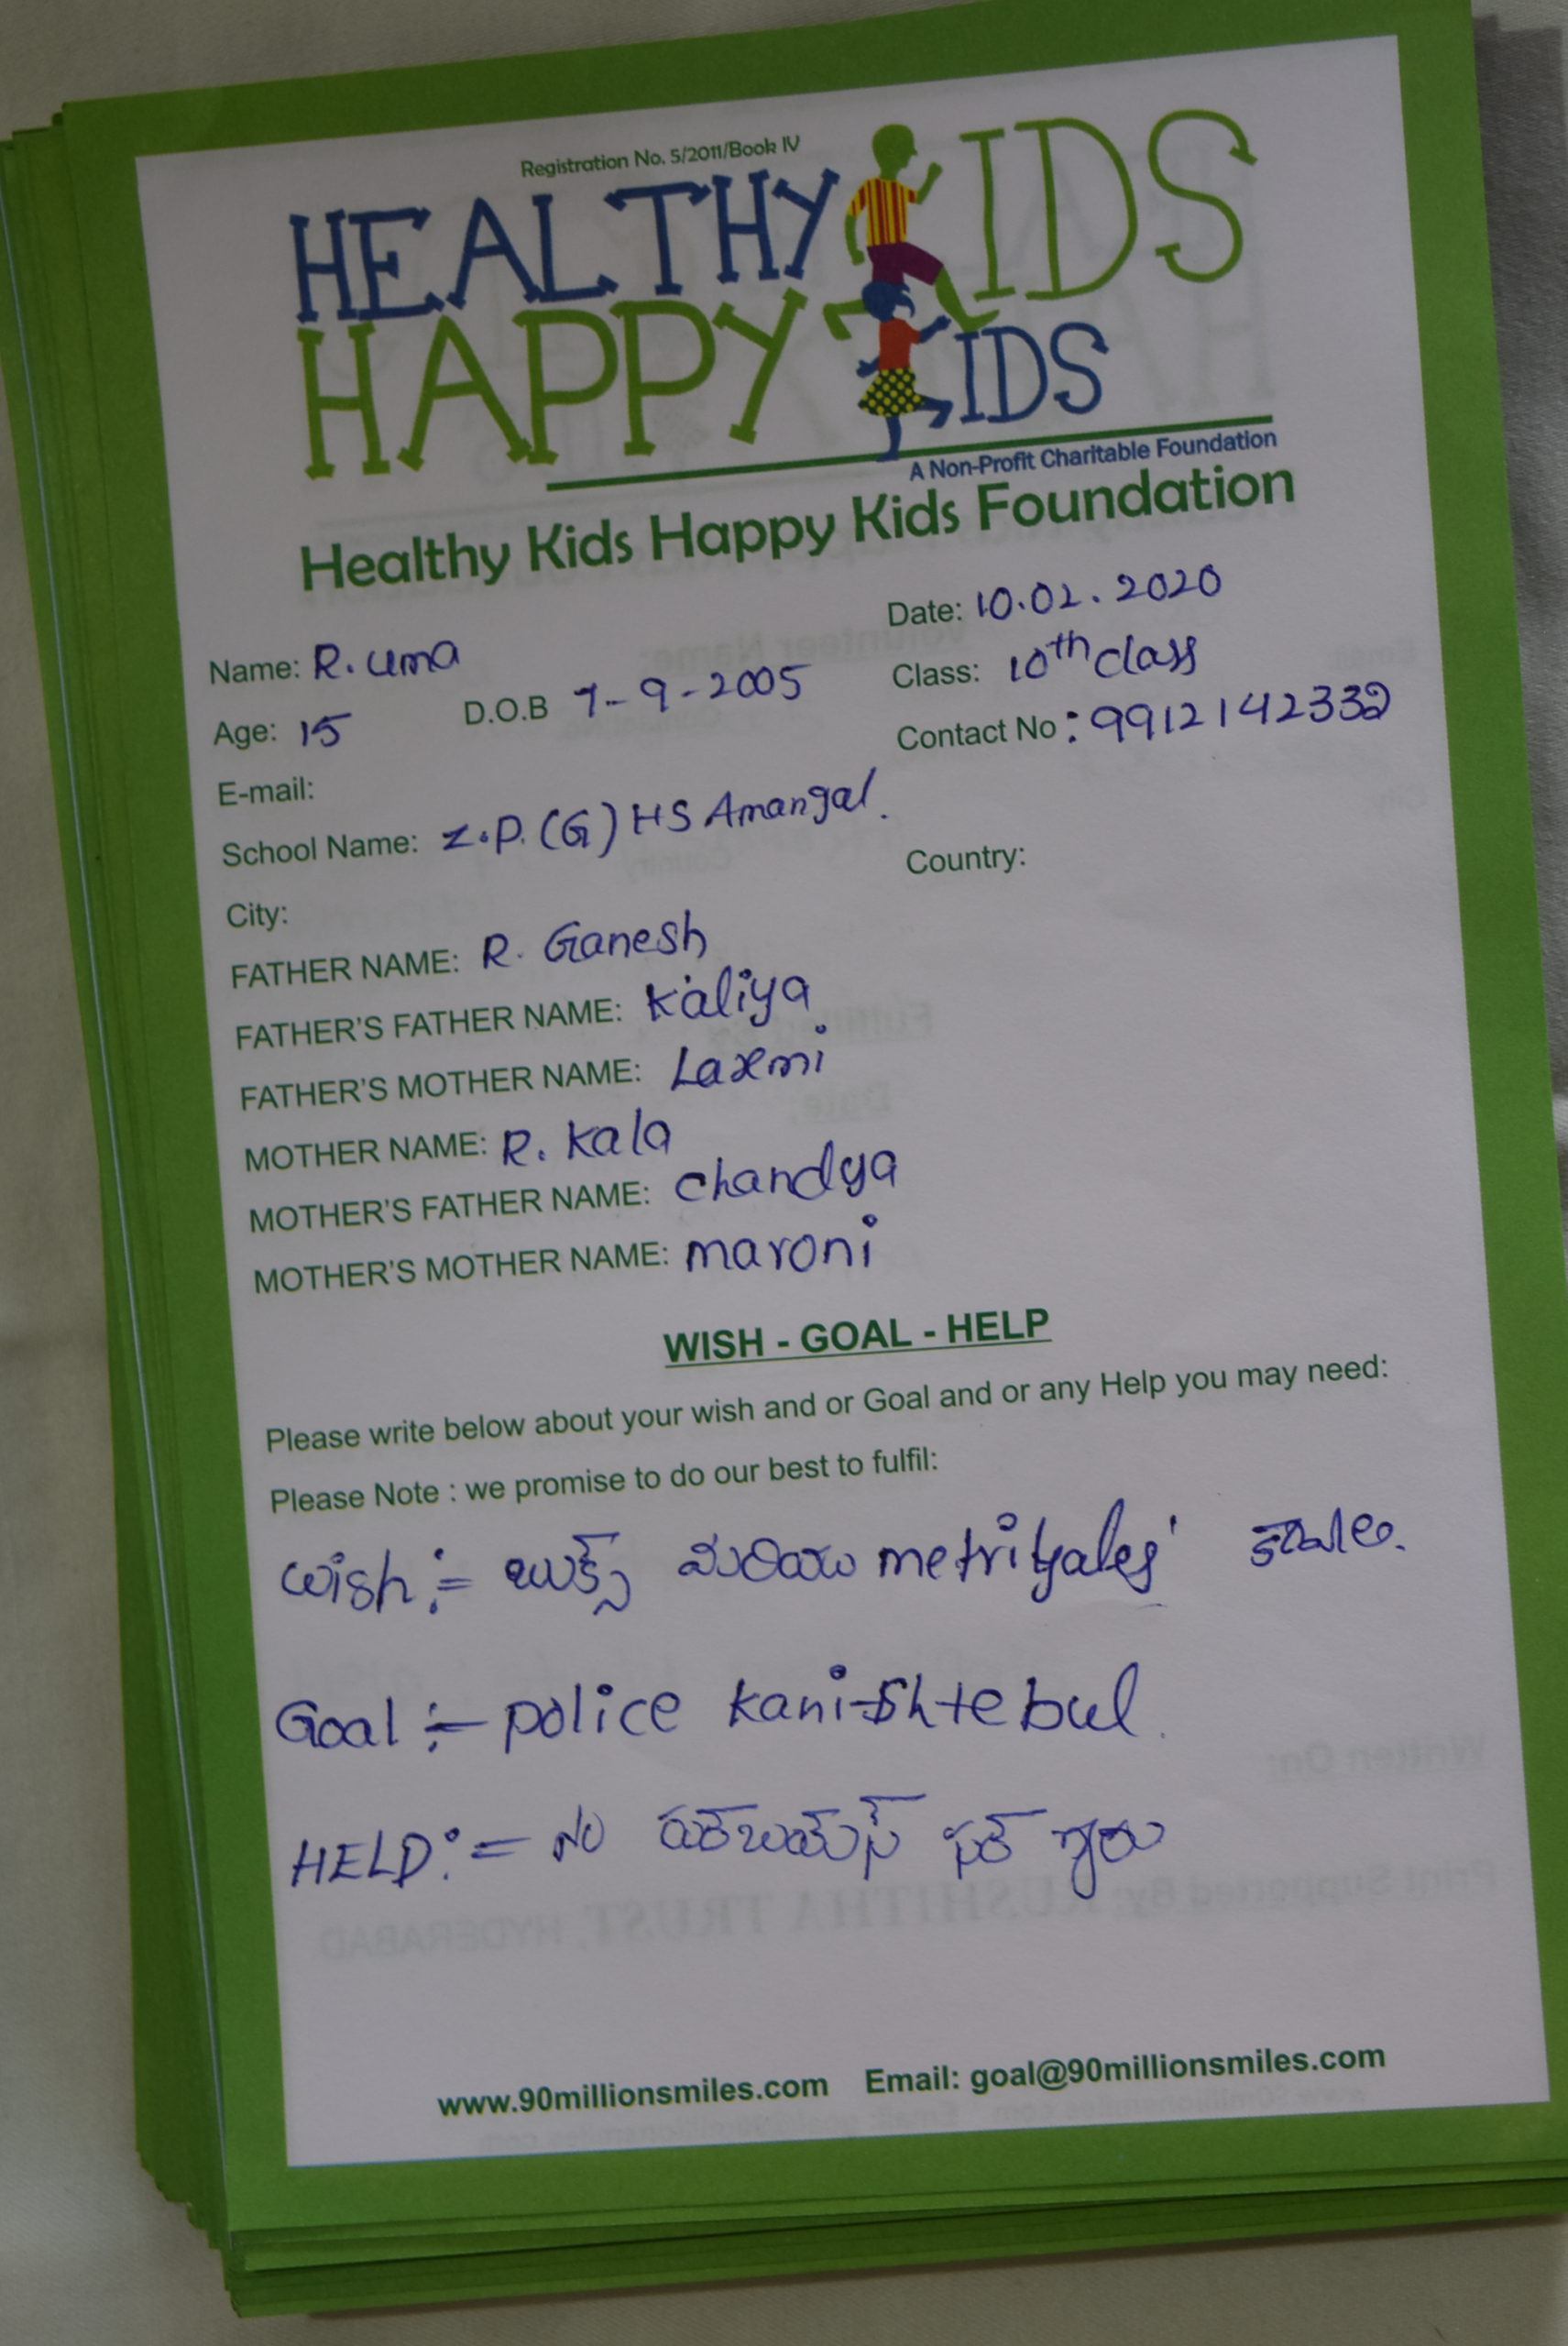 Registration No. 5/2011/Book IV
HEALTHY KIDS
HAPPY KIDS
A Non-Profit Charitable Foundation
Healthy Kids Happy Kids Foundation
Date: 10.02.2020
Name: R. uma
Class: 10th class
Age: 15 D.O.B 7-9-2005
Contact No : 9912142332
E-mail:
School Name: Z.P.(G) HS Amangal.
Country:
City:
FATHER NAME: R. Ganesh
FATHER'S FATHER NAME: Kaliya
FATHER'S MOTHER NAME: Laxmi
MOTHER NAME: R. Kala
MOTHER'S FATHER NAME: chandya
MOTHER'S MOTHER NAME: maroni
WISH - GOAL - HELP
Please write below about your wish and or Goal and or any Help you may need:
Please Note : we promise to do our best to fulfil:
wish := బుక్స్ మరియు metrityales కావాలి.
Goal :- police kani-shtebul.
HELD := no
www.90millionsmiles.com Email: goal@90millionsmiles.com